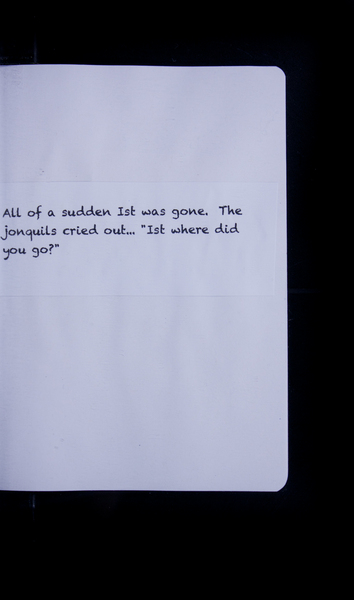 All of a sudden Ist was gone. The
jonquils cried out... "Ist where did
you go?"